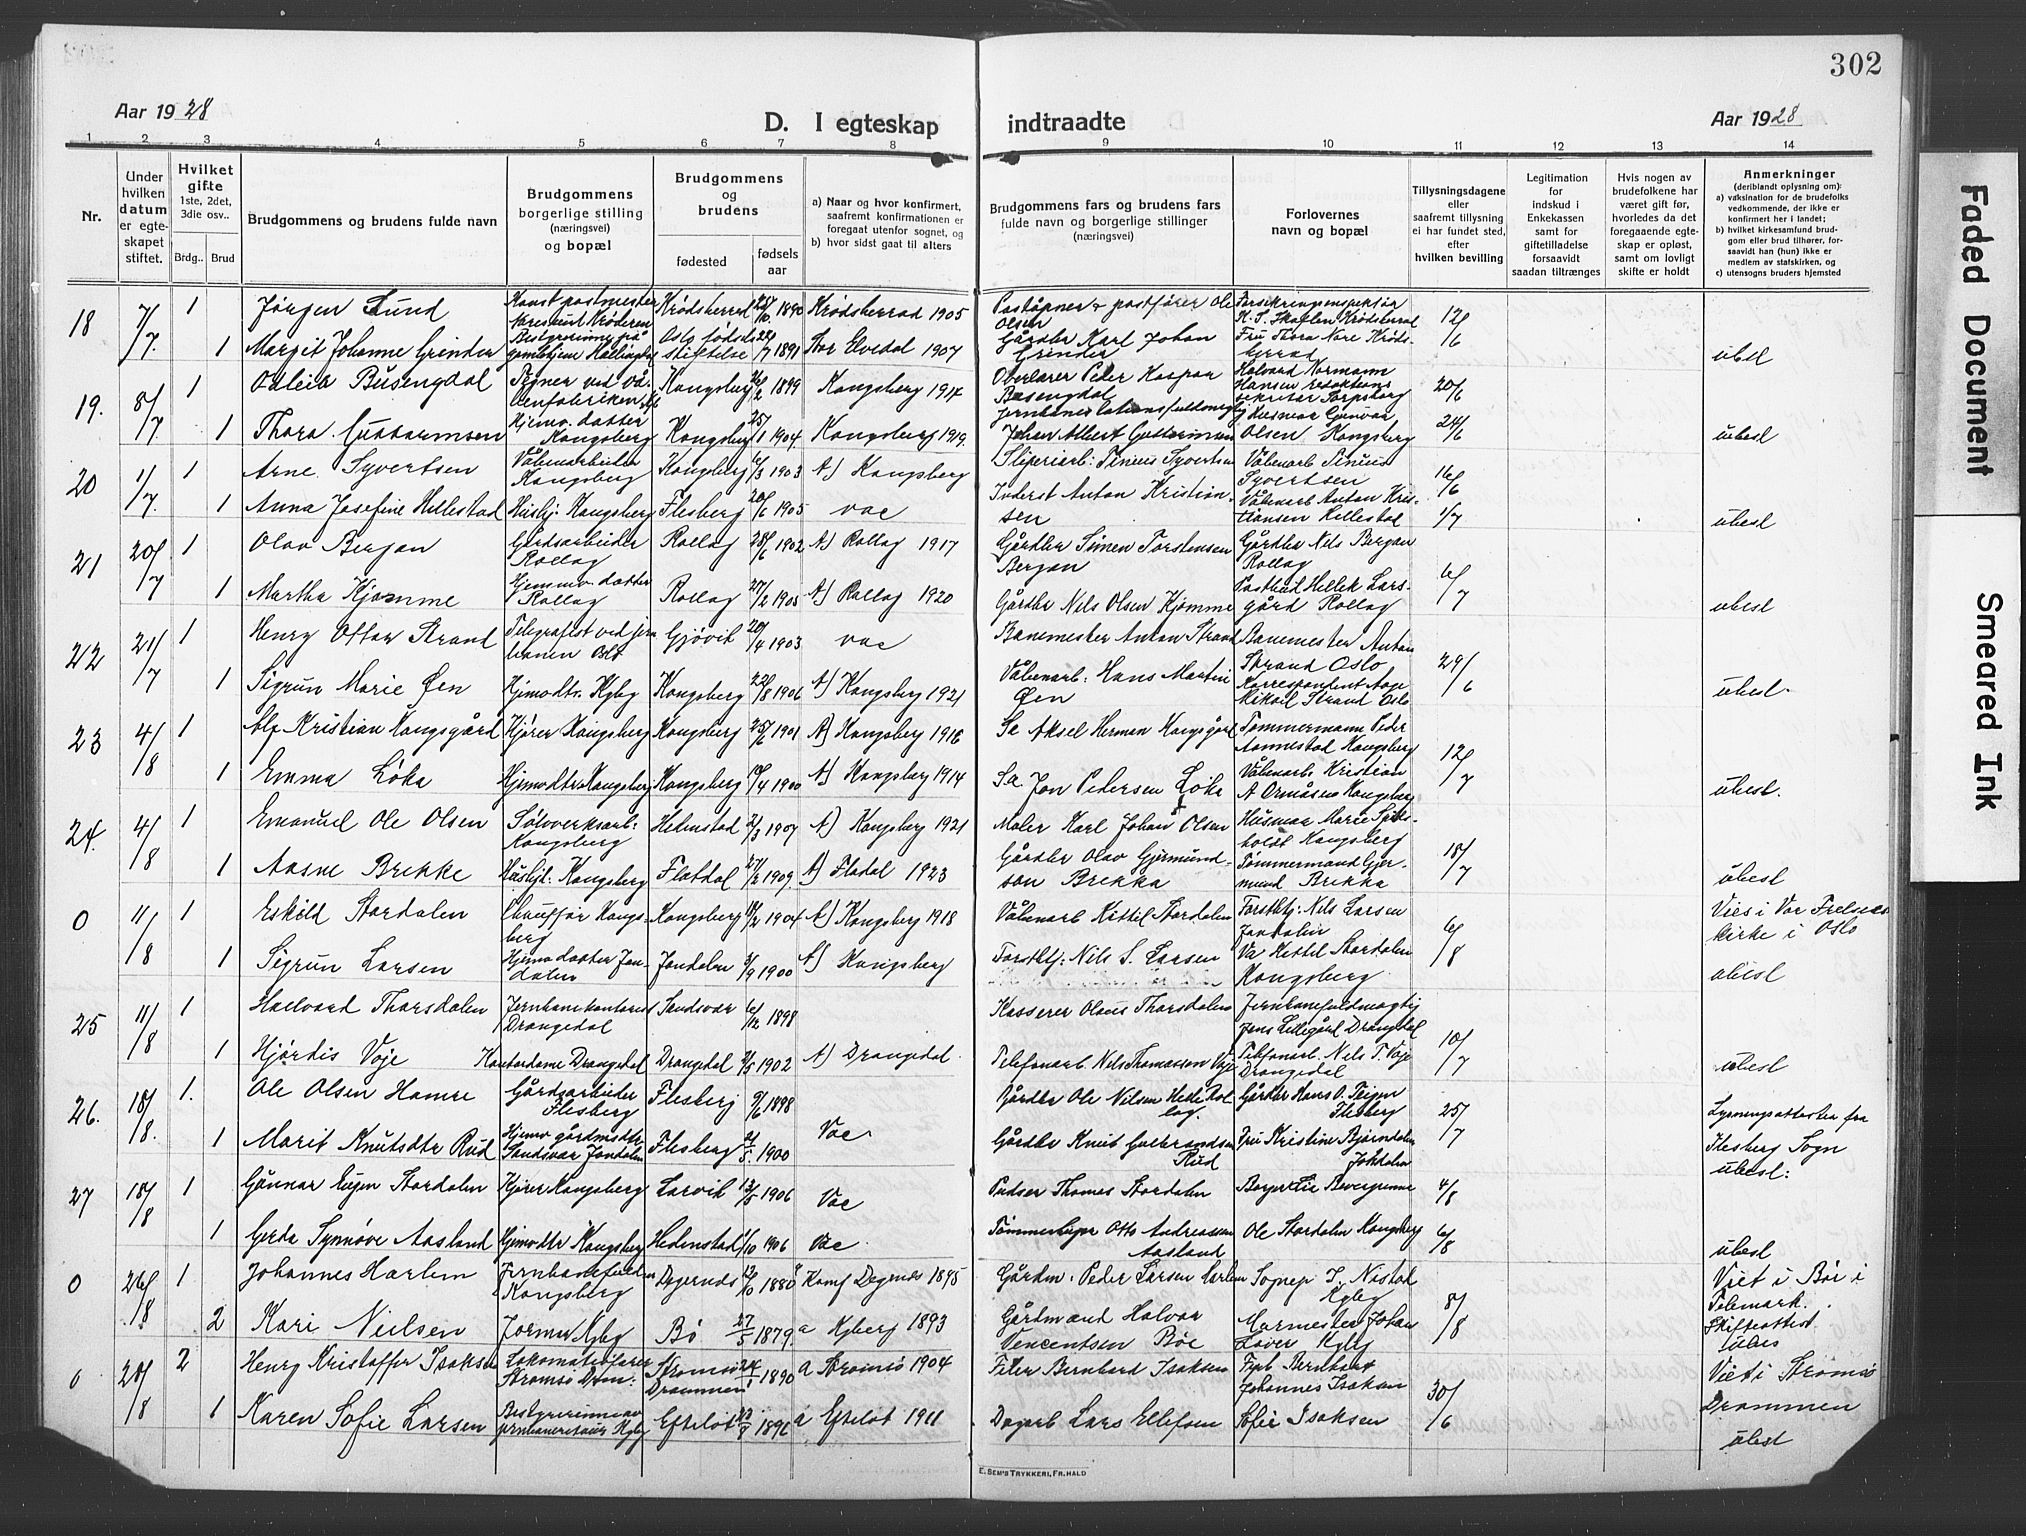 302
Aar 1928
D. I egteskap indtraadte
Aar 1928
1 2 3 4 5 6 7 8 9 10 11 12 13 14
Nr.
Under hvilken datum er egteskapet stiftet.
Hvilket gifte
1ste, 2det, 3die osv..
Brdg.. Brud
Brudgommens og brudens fulde navn
Brudgommens borgerlige stilling (næringsvei) og bopæl
Brudgommens og brudens
fødested
fødsels aar
a) Naar og hvor konfirmert, saafremt konfirmationen er foregaat utenfor sognet, og
b) hvor sidst gaat til alters
Brudgommens fars og brudens fars fulde navn og borgerlige stillinger (næringsvei)
Forlovernes navn og bopæl
Tillysningsdagene eller saafremt tillysning ei har fundet sted, efter hvilken bevilling
Legitimation for indskud i Enkekassen samt for giftetilladelse forsaavidt saadan tiltrænges
Hvis nogen av brudefolkene har været gift før, hvorledes da det foregaaende egteskap er opløst, samt om lovligt skifte er holdt
Anmerkninger
(deriblandt oplysning om):
a) vaksination for de brudefolks vedkommende, der ikke er konfirmert her i landet;
b) hvilket kirkesamfund brudgom eller brud tilhører, forsaavidt han (hun) ikke er medlem av statskirken, og
c) utensogns bruders hjemsted
18 7/7 1 Jørgen Lund Konst postmester Krødsherred 1890 Krødsherrad 1905 Poståpner & postfører Ole Olsen 12/6
1 Margit Johanne Grinder Oslo fødselsstiftelse 1891 Stor Elvedal 1907 Gårdbr Karl Johan Grinder Fru Thora Nore Krødsherad ubesl
19. 8/7 1 Odleiv Busengdal Tegner ved Våbenfabriken Kongsberg 1899 Kongsberg 1914 Overlærer Peder Kaspar Busengdal Halvard Normann Hansen 20/6
1 Thora Gustavmsen Hjemv. datter Kongsberg Kongsberg 25/1 1904 Kongsberg 1919. Johan Albert Olsen Kongsberg 24/6 ubesl
20 1/7 1 Arne Syvertsen Våbenarbeider Kongsberg Kongsberg 1903 A) Kongsberg Sliperiarb: Tinius Syvertsen Våbenarb Tinius Syvertsen 16/6
1 Anna Josefine Hellestad Hushj: Kongsberg Flesberg 20/6 1905 vac Inderst Anton Kristiansen Våbenarb Anton Kristiansen Hellestad 1/7 ubesl
21 20/7 1 Olav Bergan Gårdsarbeider Rollag Rollag 28/6 1902 A) Rollag 1917 Gårdbr Simen Torstensen Bergan Gårdbr Nils Bergan Rollag
1 Martha Kjømme Hjemmv. datter Rollag Rollag 27/2 1905 A) Rollag 1920 Gårdbr Nils Olsen Kjømme Postbud Hellek Larsgård Rollag 6/7 ubesl
22 21/7 1 Henry Ottar Strand Telegrafist ved jernbanen Oslo Gjøvik 20/4 1903 vac Banemester Anton Strand Banemester Anton Strand Oslo 29/6
1 Sigrun Marie Øen Hjemvdtr. Kgbg Kongsberg 22/8 1906 A) Kongsberg 1921 Våbenarb: Hans Martin Øen Korrespondent Aage Mikail Strand Oslo ubesl.
23 4/8 1 Alf Kristian Kongsgård Kjører Kongsberg Kongsberg 25/6 1901 A) Kongsberg 1916 Sa Aksel Herman Kongsgård Tømmermann Peder Aannestad Kongsberg 12/7
1 Emma Løka Hjemvdtr Kongsberg Kongsberg 1900 A) Kongsberg 1914 Sa Jon Pedersen Løka Våbenarb. Kristian A Ormåsen Kongsberg ubesl.
24. 4/8 1 Emanuel Ole Olsen Sølvverksarb: Kongsberg Hedenstad 2/3 1907 A) Kongsberg 1921 Maler Karl Johan Olsen Kongsberg 18/7
1 Aasne Brekke Hushj. Kongsberg Flatdal 27/2 1909. A) Fladal 1923 Gårdbr Olav Gjermundson Brekka Tømmermand Gjermund Brekka ubesl
0 11/8 1 Eskild Stordalen Chauffør Kongsberg Kongsberg 1904 A) Kongsberg 1918 Våbenarb Kittil Stordalen Forstbtj: Nils Larsen Jondalen 6/8 Vies i Vor Frelsers kirke i Oslo
1 Sigrun Larsen Hjemv datter Jondalen Jondalen 3/9 1900 A) Kongsberg Forstbtj: Nils S. Larsen Va Kettil Stordalen Kongsberg ubesl
25 11/8 1 Haavard Thorsdalen Jernbanekontorist Drangedal Sandsvær 6/12 1898 Kasserer Olaus Thorsdalen Jernbanefuldmægtig Jens Lillegård Drangedal 10/7
1 Hjørdis Voje Kontordame Drangedal Drangedal 1902 A) Drangedal. Telefonarb Nils Thomassen Voje Telfonarb. Nils T. Voje Drangedal ubesl
26. 18/8. 1. Ole Olsen Hamre Gårdsarbeider Flesberg Flesberg 9/6 1898 Vac Gårdbr Ole Nilsen Gårdbr Hans O. Teigen Flesberg 25/7 Lysningsattester fra Flesberg Sogn
1 Marit Knutsdtr Rud Hjemv gårdmdtr Sandsvær Jondalen Flesberg 1900 Gårdbr Knut Gulbrandsen Rud Fru Kristine Bjørndalen Jondalen ubesl:
27 18/8 1 Gunnar Eugen Stordalen Kjører Kongsberg Larvik 13/5 1906 Vac Pudser Thomas Stordalen 4/8
1 Gerda Synnøve Aasland Hjemvdtr Kongsberg Hedenstad 1/10 1906 Vac. Otto Andreassen Aasland Ole Stordalen Kongsberg 6/8 ubesl
0 26/8 1 Johannes Harlem Kongsberg Degernes 1880 Konf Degernes 1895 Gårdm. Peder Larsen Harlem Sognep J. Nistad Kgbg 8/8 Viet i Bø i Telemark.
2 Kari Nielsen Jormor Kgbg Bø 27/5 1879. a Kgberg 1893 Gårdmand Halvor Vencentsen Bøe Murmester Johan Laver Kgbg Skifteattest ubes
0 28/8 2 Henry Kristoffer Isaksen Lokomotivfører Strømsø Dram: Strømsø Drammen 24/1 1890 a Strømsø 1904 Filer Bernhard Isaksen Fyrb Bernhard Johannes Isaksen 30/6 Viet i Strømsø Drammen
1 Karen Sofie Larsen Bestyrerinne av Kgbg Efteløt 1896 a Efteløt 1911 Dagarb Lars Ellefsen Sofie Isaksen ubesl
E. SEM'S TRYKKERI, FR.HALD
Faded Document
Smeared Ink